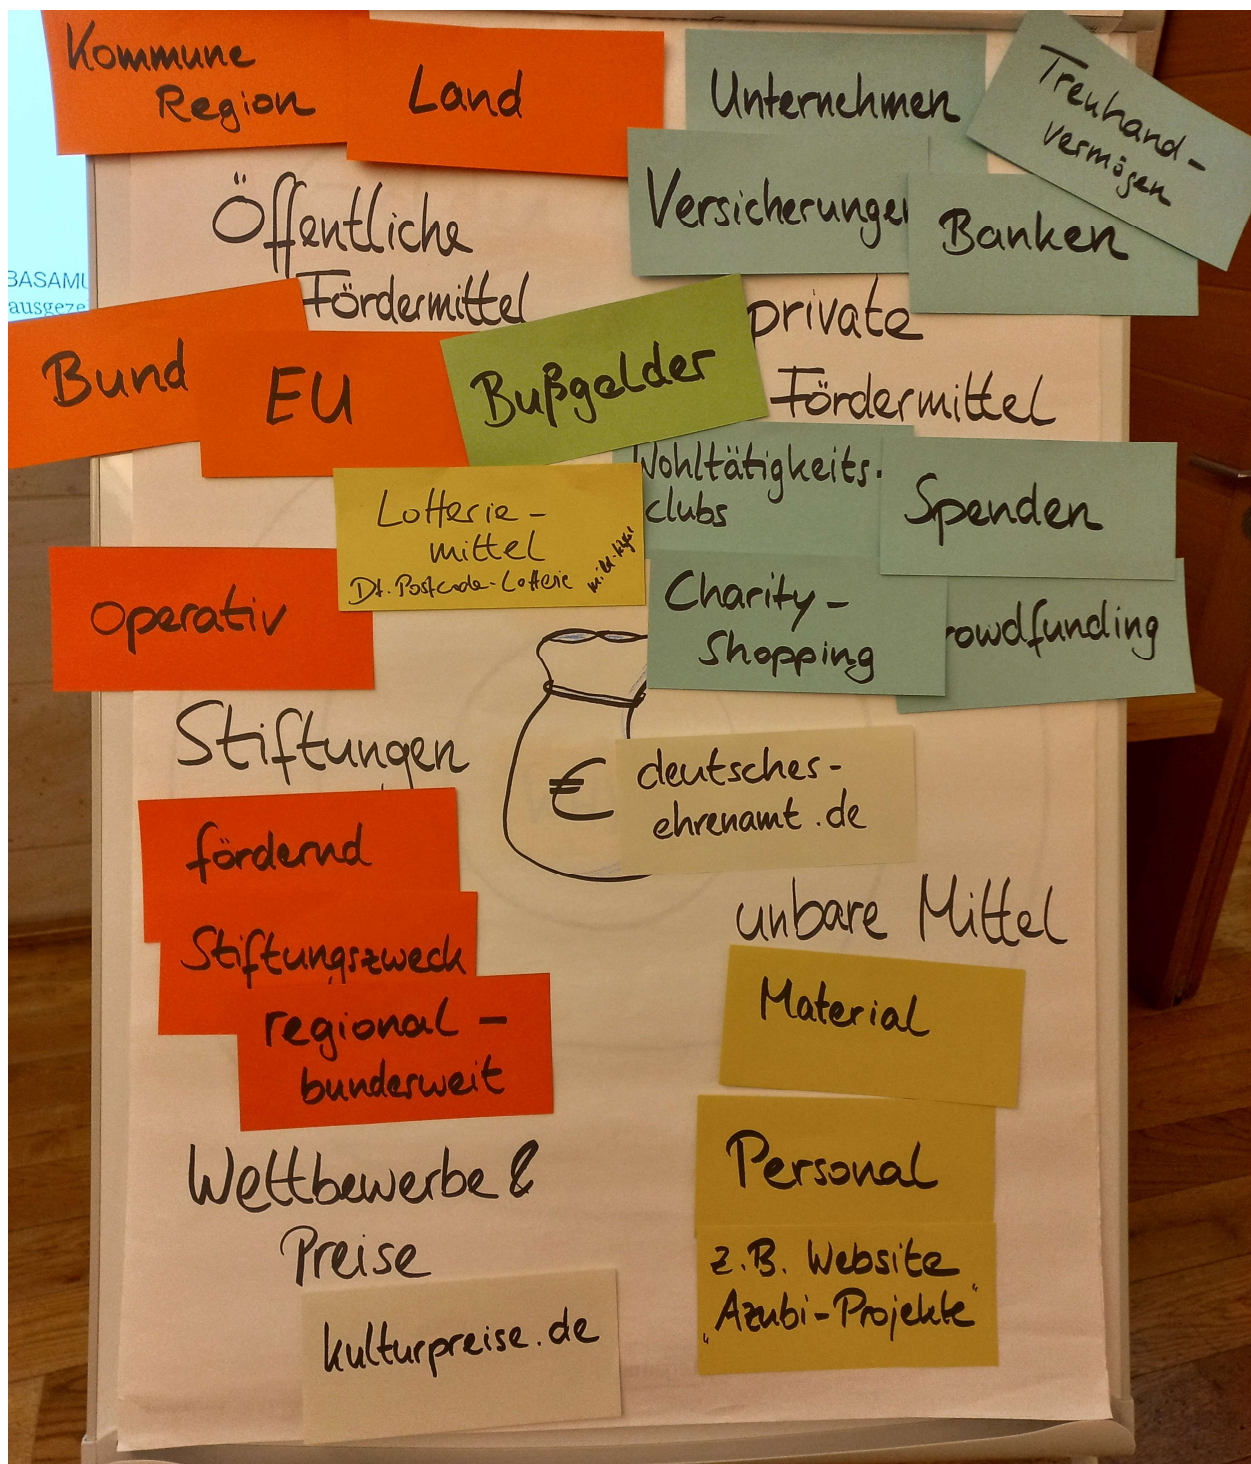 Kommune
Region
Land
Unternehmen
Treuhand-
vermögen
Versicherungen
Banken
Öffentliche
Fördermittel
private
Fördermittel
BASAMU
ausgeze
Bund
EU
Bußgelder
Wohltätigkeits-
clubs
Spenden
Lotterie-
mittel
Dt. Postcode-Lotterie
Charity-
Shopping
rowdfunding
operativ
Stiftungen
€
deutsches-
ehrenamt.de
fördernd
Stiftungszweck
regional -
bundesweit
unbare Mittel
Material
Personal
z.B. Website
„Azubi-Projekte"
Wettbewerbe &
Preise
kulturpreise.de